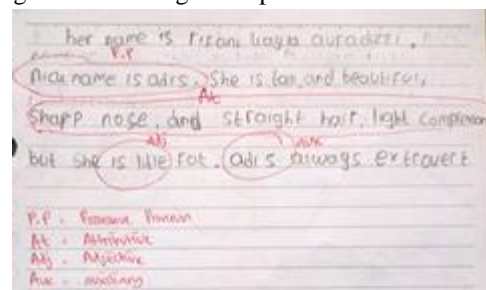 her name is risani kayla auradzzi.
P.P
nick name is adis. She is tall, and beautiful,
At
Sharp nose, and straight hair, light complexion
Adj
but she is litle fat. adi s always extrovert
P.P = Pronoun
At = Attributive
Adj = Adjective
Aux = auxiliary